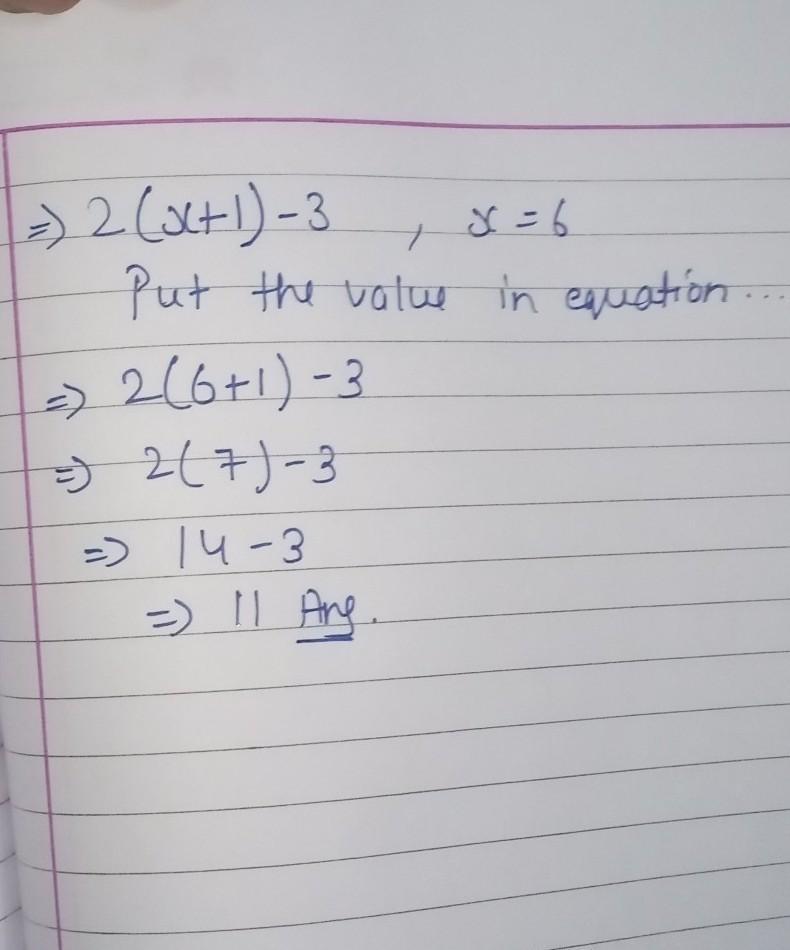 ⇒ 2(x+1)-3 , x = 6
Put the value in equation...
⇒ 2(6+1)-3
⇒ 2(7)-3
⇒ 14-3
⇒ 11 Ans.